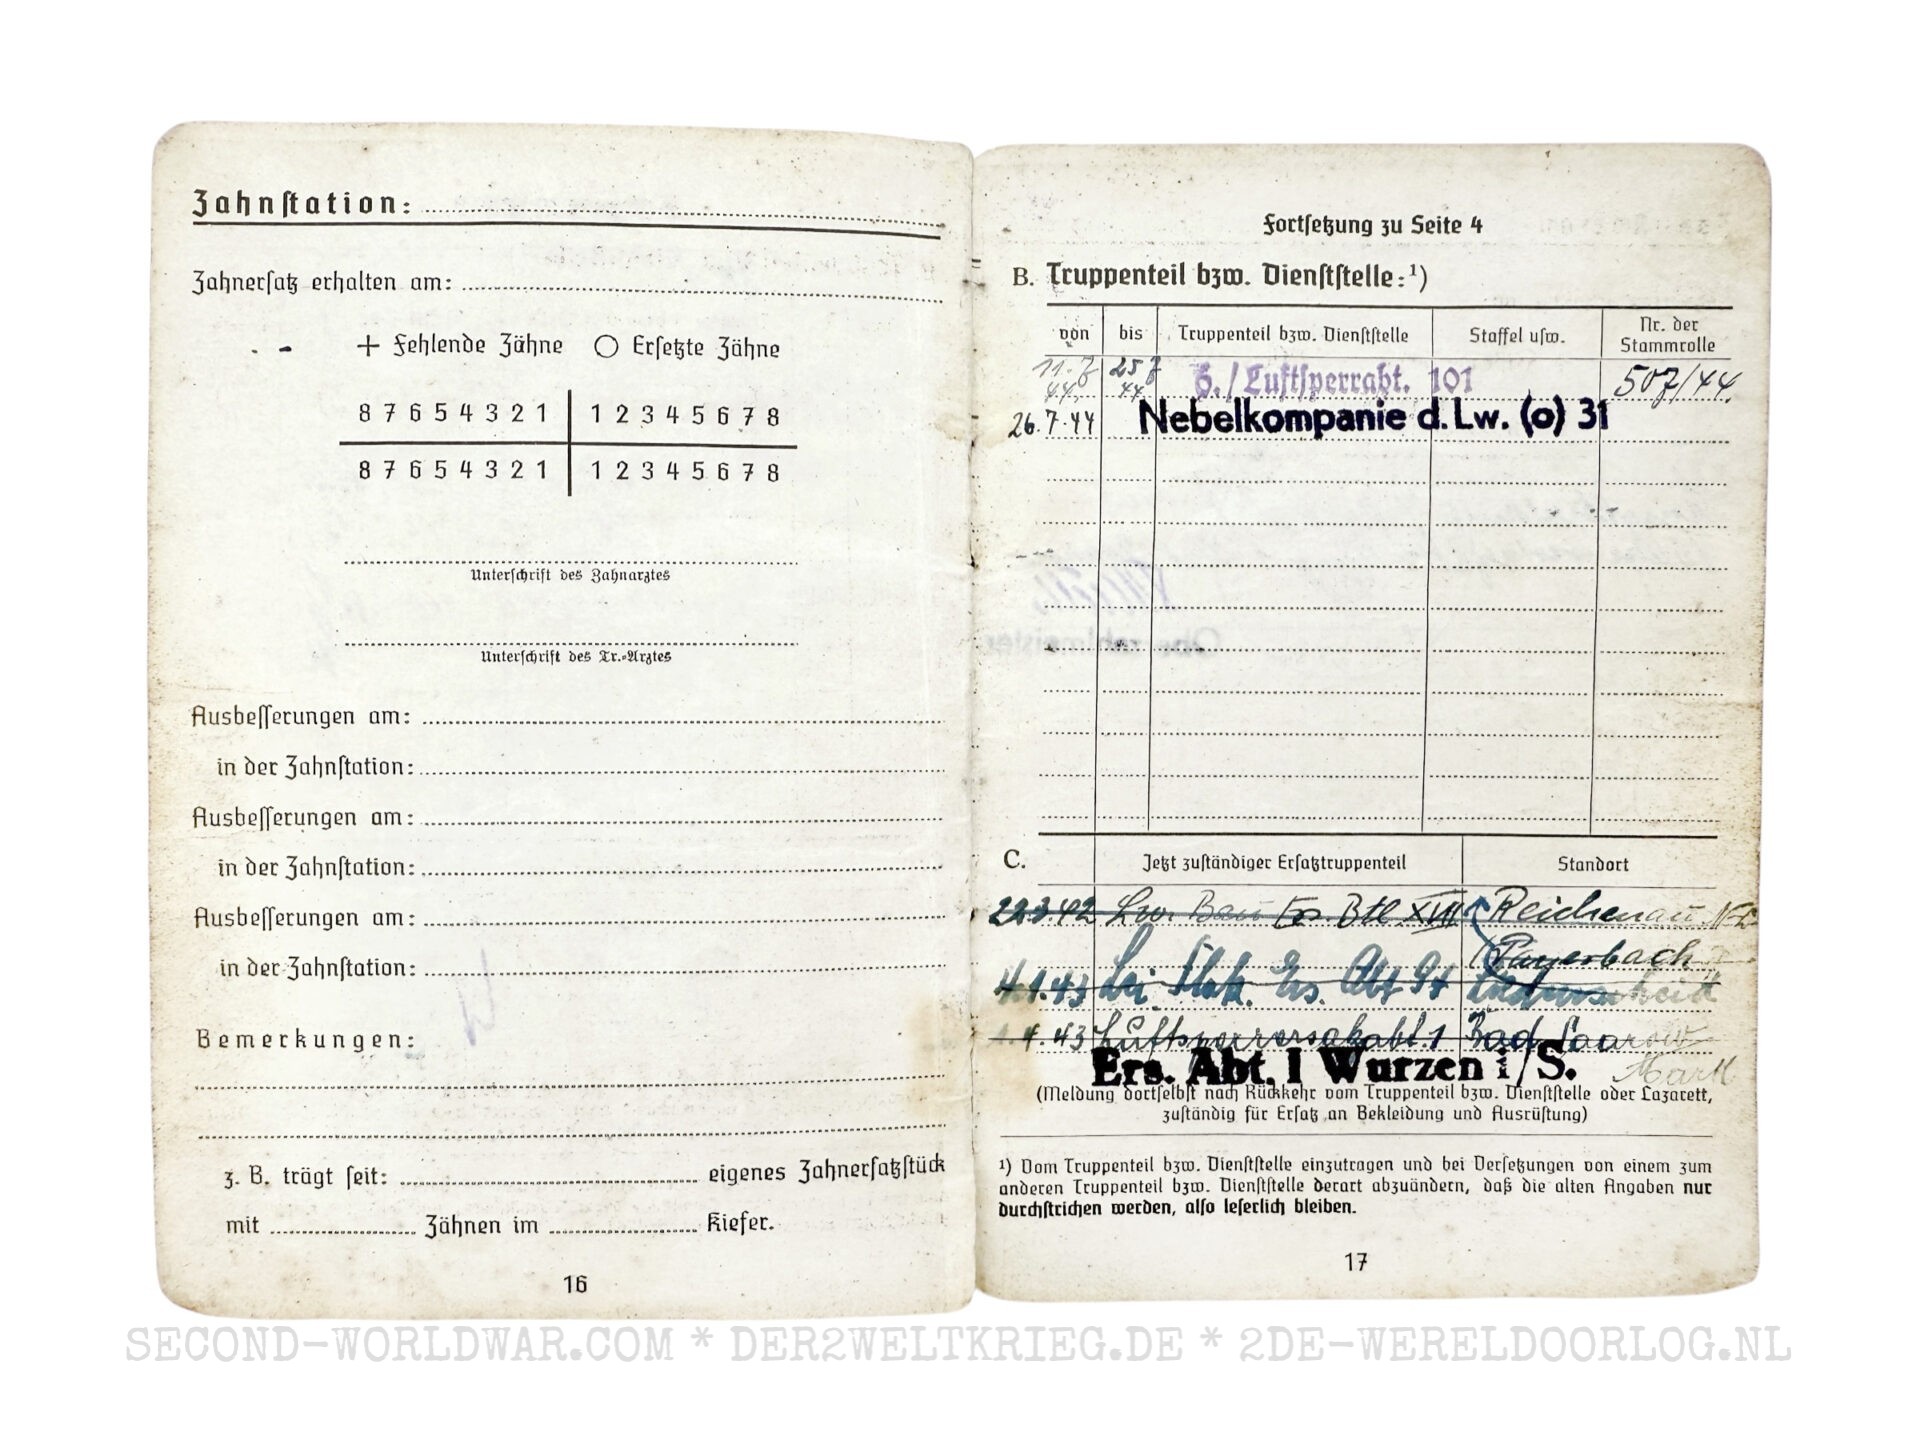 Zahnſtation:
Zahnerſatz erhalten am:
+ Fehlende Zähne ○ Erſetzte Zähne
8 7 6 5 4 3 2 1 | 1 2 3 4 5 6 7 8
8 7 6 5 4 3 2 1 | 1 2 3 4 5 6 7 8
Unterſchrift des Zahnarztes
Unterſchrift des Tr.-Arztes
Ausbeſſerungen am:
in der Zahnſtation:
Ausbeſſerungen am:
in der Zahnſtation:
Ausbeſſerungen am:
in der Zahnſtation:
Bemerkungen:
z. B. trägt ſeit: eigenes Zahnerſatzſtück
mit Zähnen im Kiefer.
16
Fortſetzung zu Seite 4
B. Truppenteil bzw. Dienſtſtelle: ¹)
von bis Truppenteil bzw. Dienſtſtelle Staffel uſw. Nr. der Stammrolle
11.7 44. 25 7 44 /Luftſperrabt. 101 507/44.
26.7.44 Nebelkompanie d. Lw. (o) 31
C. Jetzt zuſtändiger Erſatztruppenteil Standort
22.3.42 Lw. Bau Ers. Btl XVII Reichenau
Payerbach
4.1.43 Lei Flak. Ers. Abt
1.4.43 Luftsperrersatzabt. 1 Bad Saarow
Mark
Ers. Abt. I Wurzen i/S.
(Meldung dortſelbſt nach Rückkehr vom Truppenteil bzw. Dienſtſtelle oder Lazarett,
zuſtändig für Erſatz an Bekleidung und Ausrüſtung)
¹) Vom Truppenteil bzw. Dienſtſtelle einzutragen und bei Verſetzungen von einem zum
anderen Truppenteil bzw. Dienſtſtelle derart abzuändern, daß die alten Angaben nur
durchſtrichen werden, alſo leſerlich bleiben.
17
SECOND-WORLDWAR.COM * DER2WELTKRIEG.DE * 2DE-WERELDOORLOG.NL